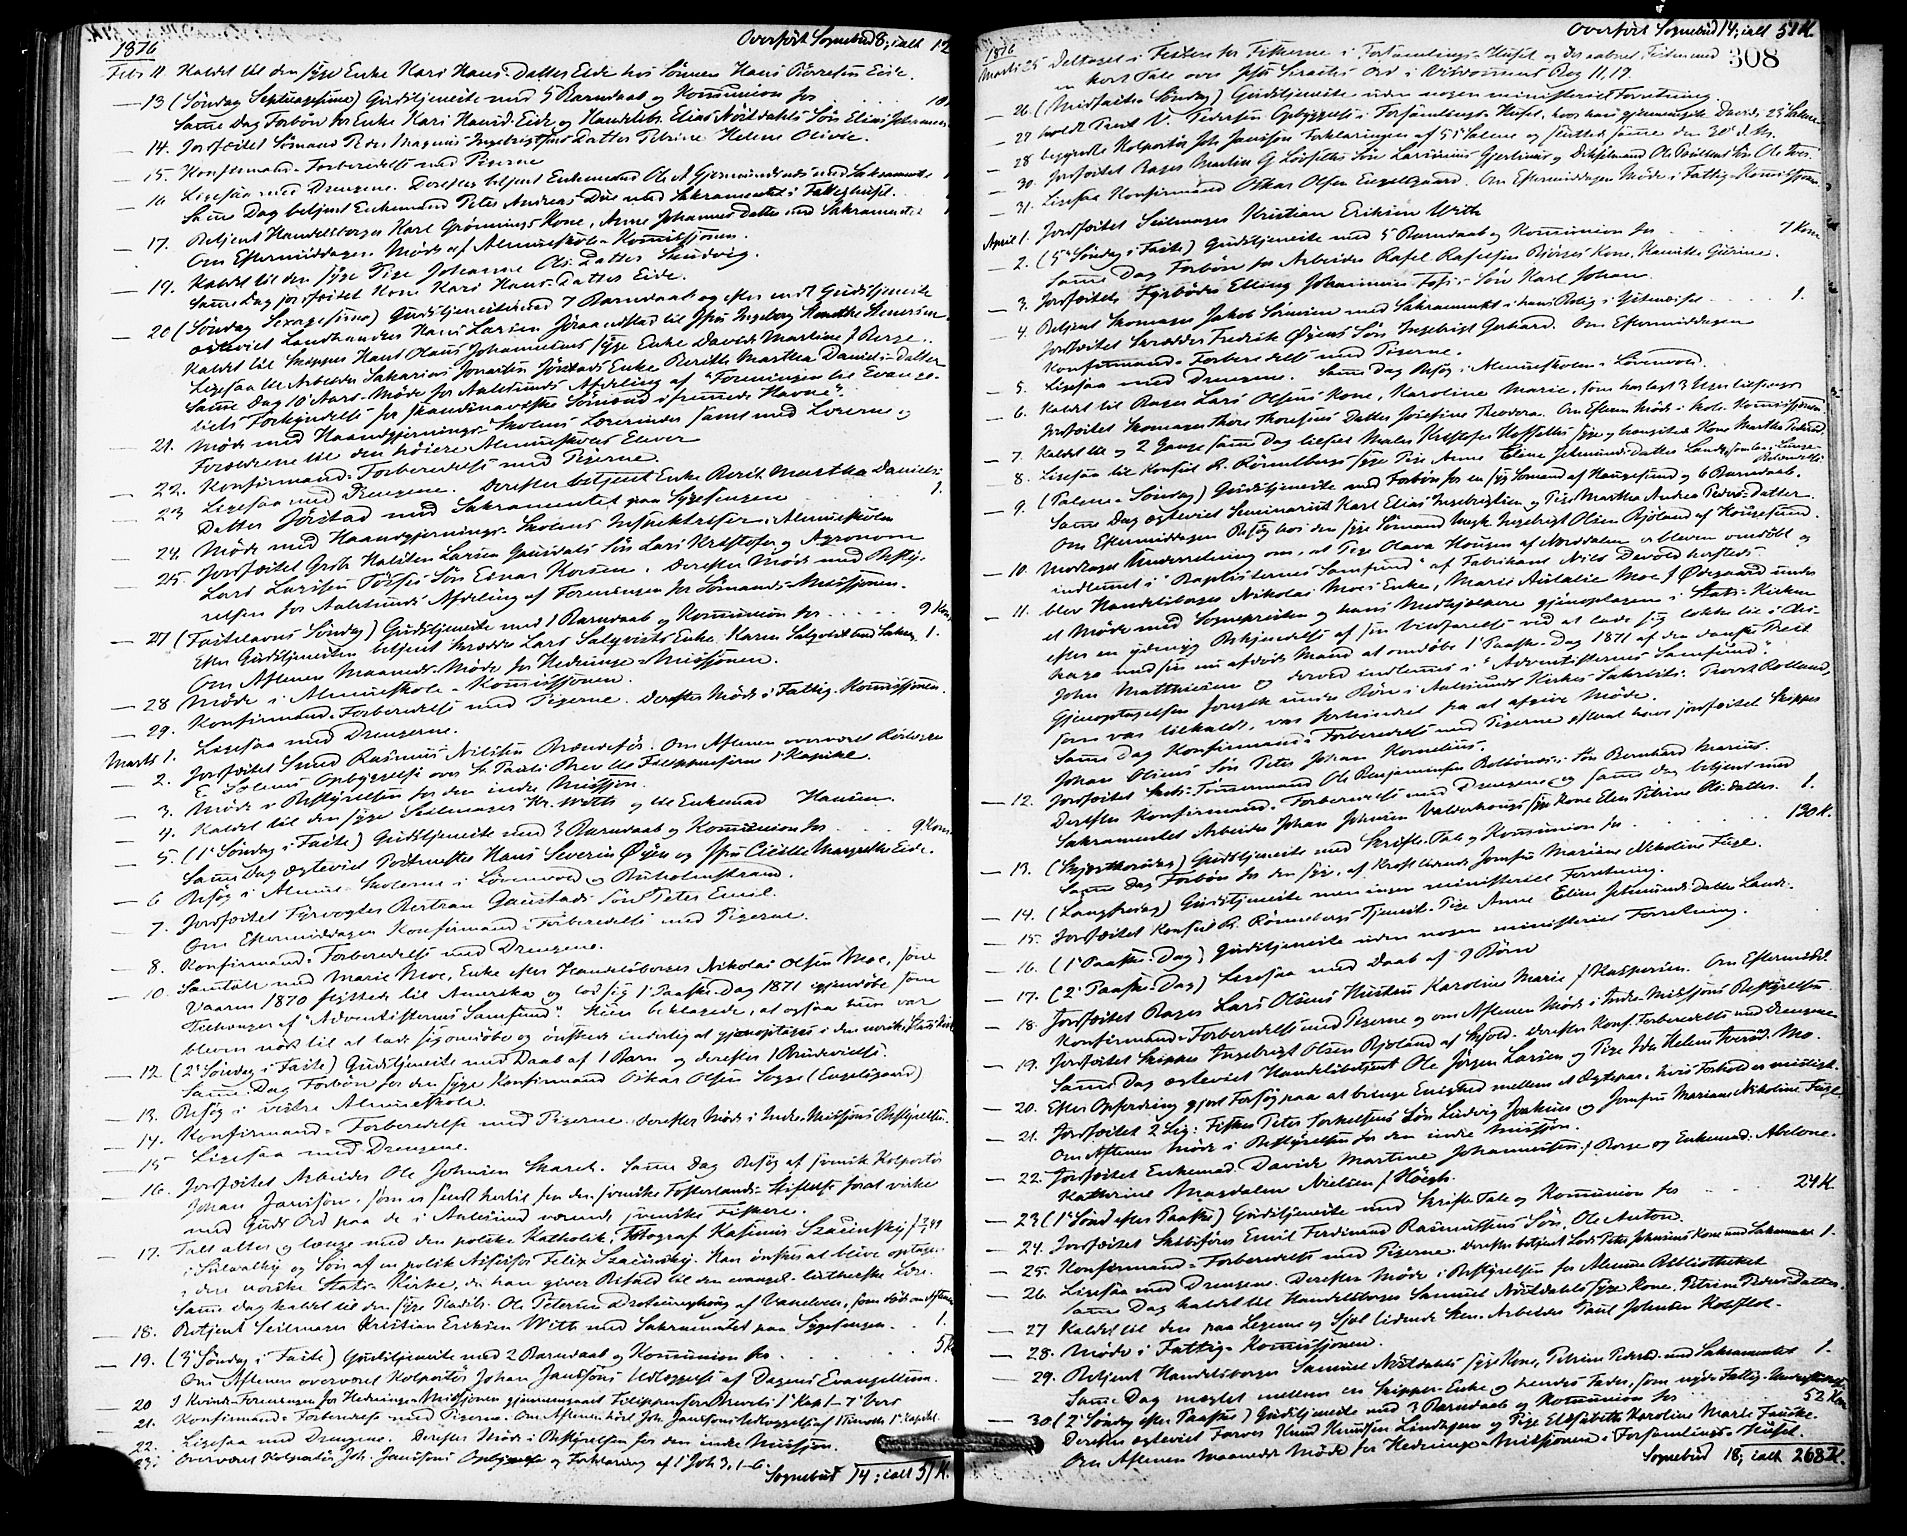 Overført Sognebud 8; ialt 12
1876
Febr 11 Kaldet til den syge Enke Kari Hans-Datter Eide hos Sønnen Hans Eide.
— 13 (Søndag Septuagesima) Gudstjeneste med 5 Barnedaab og Kommunion for . . . 10
Samme Dag Forbøn for Enke Kari Hansd. Eide og Handelsb. Elias Søn Elias
— 14. Jordfæstet Sømand Peder Magnus Ingebrigtsens Datter Petrine Helene Olivie.
15. Konfirmand-Forberedelse med Pigerne
— 16 Ligesaa med Drengene. Derefter betjent Enkemand Ole med Sakramentet 1
Samme Dag betjent Enkemand Peter Andreas med Sakramentet i Fattighuset. 1
— 17. Betjent Handelsborger Karl Grønnings Kone, Anne Johannes Datter med Sakramentet
Om Eftermiddagen Møde af Almueskole-Komissjonen.
— 19. Kaldet til den syge Pige Johanne Ols Datter
Samme Dag jordfæstet Kone Kari Hans-Datter Eide.
— 20 (Søndag Sexagesima) Gudstjeneste med 7 Barnedaab og efter endt Gudstjeneste
ægteviet Landhandler Hans Larsen til Jfru Ingeborg
Kaldet til Skipper Hans Olaus Johannesens syge Enke Davide Martine f. Borge.
Ligesaa til Arbeider Sakarias Enke Berith Martha Daniels-Datter
Samme Dag 10 Aars-Møde for Aalesunds Afdeling af "Foreningen til Evange-
liets Forkyndelse for skandinaviske Sømænd i fremede Havne".
— 21. Møde med Haandgjernings-Skolens Lærerinder samt med Lærerne og
Forældrene til den høiere Almueskoles Elever
Konfirmand-Forberedelse med Pigerne.
— 22. Ligesaa med Drengene. Derefter betjent Enke Berit Martha Daniels-
Datter Jørstad med Sakramentet paa Sygesengen . . . 1.
— 23 Møde med Haandgjernings-Skolens Inspektricer i Almueskolen
— 24. Jordfæstet Halsten Larsen Søn Lars Kristofer og Agronom
25. Lars Larsen Søn Einar Derefter Møde med Besty-
relsen for Aalesunds Afdeling af Foreningen for Sømands-Missjonen.
— 27 (Fastelavns Søndag) Gudstjeneste med 1 Barnedaab og Kommunion for . . . 9 Kom
Efter Gudstjenesten betjent Skrædder Lars Salqvists Enke Karen Salqvist med Sakra. 1.
Om Aftenen Maaneds-Møde for Hedninge-Missjonen.
— 28 Møde i Almueskole-Komissjonen.
— 29. Konfirmand-Forberedelse med Pigerne. Derefter Møde i Fattig-Komissjonen.
Marts 1. Ligesaa med Drengene.
— 2. Jordfæstet Smed Rasmus Nilsen Om Aftenen overværet
E. Opbyggelse over St. Pauli Brev til Filippenserne 1ste Kapitel.
— 3. Møde i Bestyrelsen for den indre Missjon.
— 4. Kaldet til den syge Seilmager Kr. With og til Enkemad Hansen.
— 5. (1e Søndag i Faste) Gudstjeneste med 3 Barnedaab og Kommunion for . . 9 Kom.
Samme Dag ægteviet Postmester Hans Severin Øyen og Jfru Cicilie Margrethe Eide.
— 6 Besøg i Almue-Skolerne i Lørenvold og Buholmstrand.
— 7. Jordfæstet Fyrvogter Bertran Gaustads Søn Peter Emil.
Om Eftermiddagen Konfirmand-Forberedelse med Pigerne.
— 8. Konfirmand-Forberedelse med Drengene.
— 10. Samtale med Marie Moe, Enke efter Handelsborger Nikolai Olsen Moe, som
Vaaren 1870 flyttede til Amerika og lod sig 1e Paaske-Dag 1871 gjendøbe som
Tilhænger af "Adventisternes Samfund". Hun beklagede, at ogsaa hun var
bleven nødt til at lade sig omdøbe og ønskede inderlig at gjenoptages i den norske Stats Kirke
— 12. (2e Søndag i Faste) Gudstjeneste med Daab af 1 Barn og derefter 1 Brudevielse.
Samme Dag Forbøn for den syge Konfirmand Oskar Olsen Sogge (Engelsgaard)
— 13. Besøg i vestre Almueskole.
— 14. Konfirmand-Forberedelse med Pigerne. Derefter Møde i Indre-Missjons Bestyrelse.
— 15 Ligesaa med Drengene.
— 16. Jordfæstet Arbeider Ole Johnsen Skaret. Samme Dag Besøg af svensk Kolportør
Johan Jansson, som er sendt hertil fra den svenske Fosterlands-Stiftelse for at virke
med Guds Ord paa de i Aalesund værende svenske Fiskere.
— 17. Talt atter og længe med den polske Katholik, Fotograf Kasimir Szacinsky,
i Suwalky og Søn af en polsk Assessor Felix Szacinsky. Han ønsker at blive optagen
i den norske Stats-Kirke, da han giver Bifald til den evangel.-lutherske Lære.
Samme Dag kaldet til den syge Ole Petersen
— 18. Betjent Seilmager Kristian Eriksen With med Sakramentet paa Sygesengen. . 1.
— 19. (3e Søndag i Faste) Gudstjeneste med 2 Barnedaab og Kommunion for . . . 5 K
Om Aftenen overværet Kolportør Johan Janssons Udlæggelse af Dagens Evangelium.
— 20 I Kvinde-Foreningen for Hedninge-Missjonen gjennemgaaet Filippenser-Brevets 1e Kap. 1–7 Vers
— 21. Konfirmand-Forberedelse med Pigerne. Om Aftenen hørt Joh. Janssons Udlæggelse af 1 Timoth. 1e Kapitel.
— 22. Ligesaa med Drengene. Derefter Møde i Bestyrelsen for den indre Missjon.
— 23. Overværet Kolportør Joh. Janssons Opbyggelse og Forklaring af 1 Joh 3, 1–6.
Sognebud 14; ialt 51 K.
Overført Sognebud 14; ialt 51 K.
308
1876
Marts 25 Deltaget i Festen for Fiskerne i Forsamlings-Huset og der aabnet Festen med
en kort Tale over Jesu Ord i Aag 11, 17.
— 26 (Midfaste-Søndag) Gudstjeneste uden nogen ministeriel Forretning.
— 27 holdt Prest V. Pedersen Opbyggelse i Forsamlings-Huset, hvor han gjennemgik Davids 23e Salme
— 28 begyndte Kolportør Joh. Jansson Forklaringen af 51e Salme og sluttede samme den 30e ds.
— 30. Jordfæstet Bager Martin G. Søn Larsinius Gjertinius og Ole Søn Ole
— 31. Ligesaa Konfirmand Oskar Olsen Engelsgaard. Om Eftermiddagen Møde i Fattig-Komissjonen
April 1. Jordfæstet Seilmager Kristian Eriksen With
— 2. (5e Søndag i Faste) Gudstjeneste med 5 Barnedaab og Kommunion for . . . 7 Kom
Samme Dag Forbøn for Arbeider Rafel Rafelsen Kone,
— 3. Jordfæstet Fyrbøder Elling Johannesens Søn Karl Johan
— 4. Betjent Skomager Jakob Sørensen med Sakramentet i hans Bolig . . . 1.
Jordfæstet Skrædder Fredrik Øyens Søn Ingebrigt Gerhard. Om Eftermiddagen
Konfirmand-Forberedelse med Pigerne.
— 5. Ligesaa med Drengene. Samme Dag Besøg i Almueskolen i Lørenvold.
— 6. Kaldet til Bager Lars Olsens Kone, Karoline Marie, som har lagt 3 Uger
Jordfæstet Skomager Thore Thoresens Datter Josefine Theodora. Om Eftermd. Møde i Skole-Komissjonen.
— 7. Kaldet til og 2 Gange samme Dag tilseet Maler Kristofer syge og Kone Martha
— 8. Ligesaa til Konsul R. Rønnebergs syge Pige Anne Eline Johannes-Datter
— 9. (Palme-Søndag) Gudstjeneste med Forbøn for en syg Sømand af Haugesund og 6 Barnedaab.
Samme Dag ægteviet Seminarist Karl Elias Ingebrigtsen og Pige Martha Andrea Peders-Datter.
Om Eftermiddagen Besøg hos den syge Sømand Ingebrigt Olsen Bjoland af Haugesund.
— 10. Modtaget Underretning om, at Pige Olava Hougen af Norddalen er bleven omdøbt og
indlemet i "Baptisternes Samfund" af Fabrikant Nils Devold hersteds.
— 11. blev Handelsborger Nikolai Moes Enke, Marie Moe f. Ødegaard under
et Møde med Sognepresten og hans Medhjælpere gjenoptagen i Stats-Kirken
efter en ydmyg Bekjendelse af sin Vildfarelse ved at lade sig lokke til i
med sin nu afdøde Mand at omdøbe 1e Paaske-Dag 1871 af den danske Prest
John Matthiesen og derved indlemes i "Adventisternes Samfund".
Gjenoptagelsen foregik under Bøn i Aalesunds Kirkes Sakristi. Provst Rolland,
som var tilkaldt, var forhindret fra at afgive Møde.
Samme Dag Konfirmand-Forberedelse med Pigerne jordfæstet Skipper
Johan Olsens Søn Peter Johan Kornelius.
— 12. Jordfæstet Ole Benjaminsen Søn Bernhard Marius.
Derefter Konfirmand-Forberedelse med Drengene og samme Dag betjent med
Sakramentet Arbeider Johan Johnsen syge Kone Elen Petrine Ols-Datter. 1.
— 13. (Skjærthorsdag) Gudstjeneste med Skrifte-Tale og Kommunion for . . . 130 K.
Samme Dag Forbøn for den syge, af Kræft lidende Jomfru Mariane Nikoline Fugl.
— 14. (Langfredag) Gudstjeneste men ingen ministeriel Forretning.
— 15. Jordfæstet Konsul R. Rønnebergs Tjeneste-Pige Anne Eline
— 16. (1e Paaske-Dag) Gudstjeneste uden nogen ministeriel Forretning.
— 17. (2e Paaske-Dag) Ligesaa med Daab af 9 Børn
— 18. Jordfæstet Bager Lars Olsens Hustru Karoline Marie f. Kaspersen. Om Eftermidd.
Konfirmand-Forberedelse med Pigerne og om Aftenen Møde i Indre-Missjons Bestyrelsen.
— 19. Jordfæstet Skipper Ingebrigt Olsen Bjoland af Skjold. Derefter Konf. Forberedelse med Drengene
Samme Dag ægteviet Handelsbetjent Ole Jørgen Larsen og Pige Ida Helene Mo.
— 20. Efter Opfordring gjort Forsøg paa at bringe Enighed mellem et Ægtepar, hvis Forhold er misligt.
— 21. Jordfæstet 2 Lig: Fisker Peter Torkelsens Søn Ludvig Joakim og Jomfru Mariane Nikoline Fugl
Om Aftenen Møde i Bestyrelsen for den indre Missjon.
— 22. Jordfæstet Enkemad. Davide Martine Johannesen f. Borge og Enkemad. Abelone
Katherine Magdalene Nielsen f. Høegh.
— 23 (1e Sønd. efter Paaske) Gudstjeneste med Skrifte-Tale og Kommunion for . . . 24 K.
— 24. Jordfæstet Skibsfører Emil Ferdinand Rasmussens Søn, Ole Anton.
— 25. Konfirmand-Forberedelse med Pigerne. Derefter betjent Lods Peter Johnsens Kone med Sakramentet 1.
— 26. Ligesaa med Drengene. Derefter Møde i Bestyrelsen for Almue-Bibliotheket
Samme Dag kaldet til Handelsborger Samuel syge Kone, Petrine Peders-Datter.
— 27 Kaldet til den paa Legeme og Sjel lidende Arbeider Paul Johnsen
— 28. Møde i Fattig-Komissjonen.
— 29. Betjent Handelsborger Samuel syge Kone, Petrine Pedersd. med Sakramentet 1.
Samme Dag mæglet mellem en Skipper-Enke og hendes Fader, som nyder Fattig-Understøttelse
— 30 (2e Søndag efter Paaske) Gudstjeneste med 3 Barnedaab og Kommunion for . . . 52 Kom
Derefter ægteviet Farver Knud Knudsen og Pige Elisabeth Karoline Marie
Om Aftenen Maaneds-Møde for Hedninge-Missjonen i Forsamlings-Huset.
Sognebud 18; ialt 268 K.